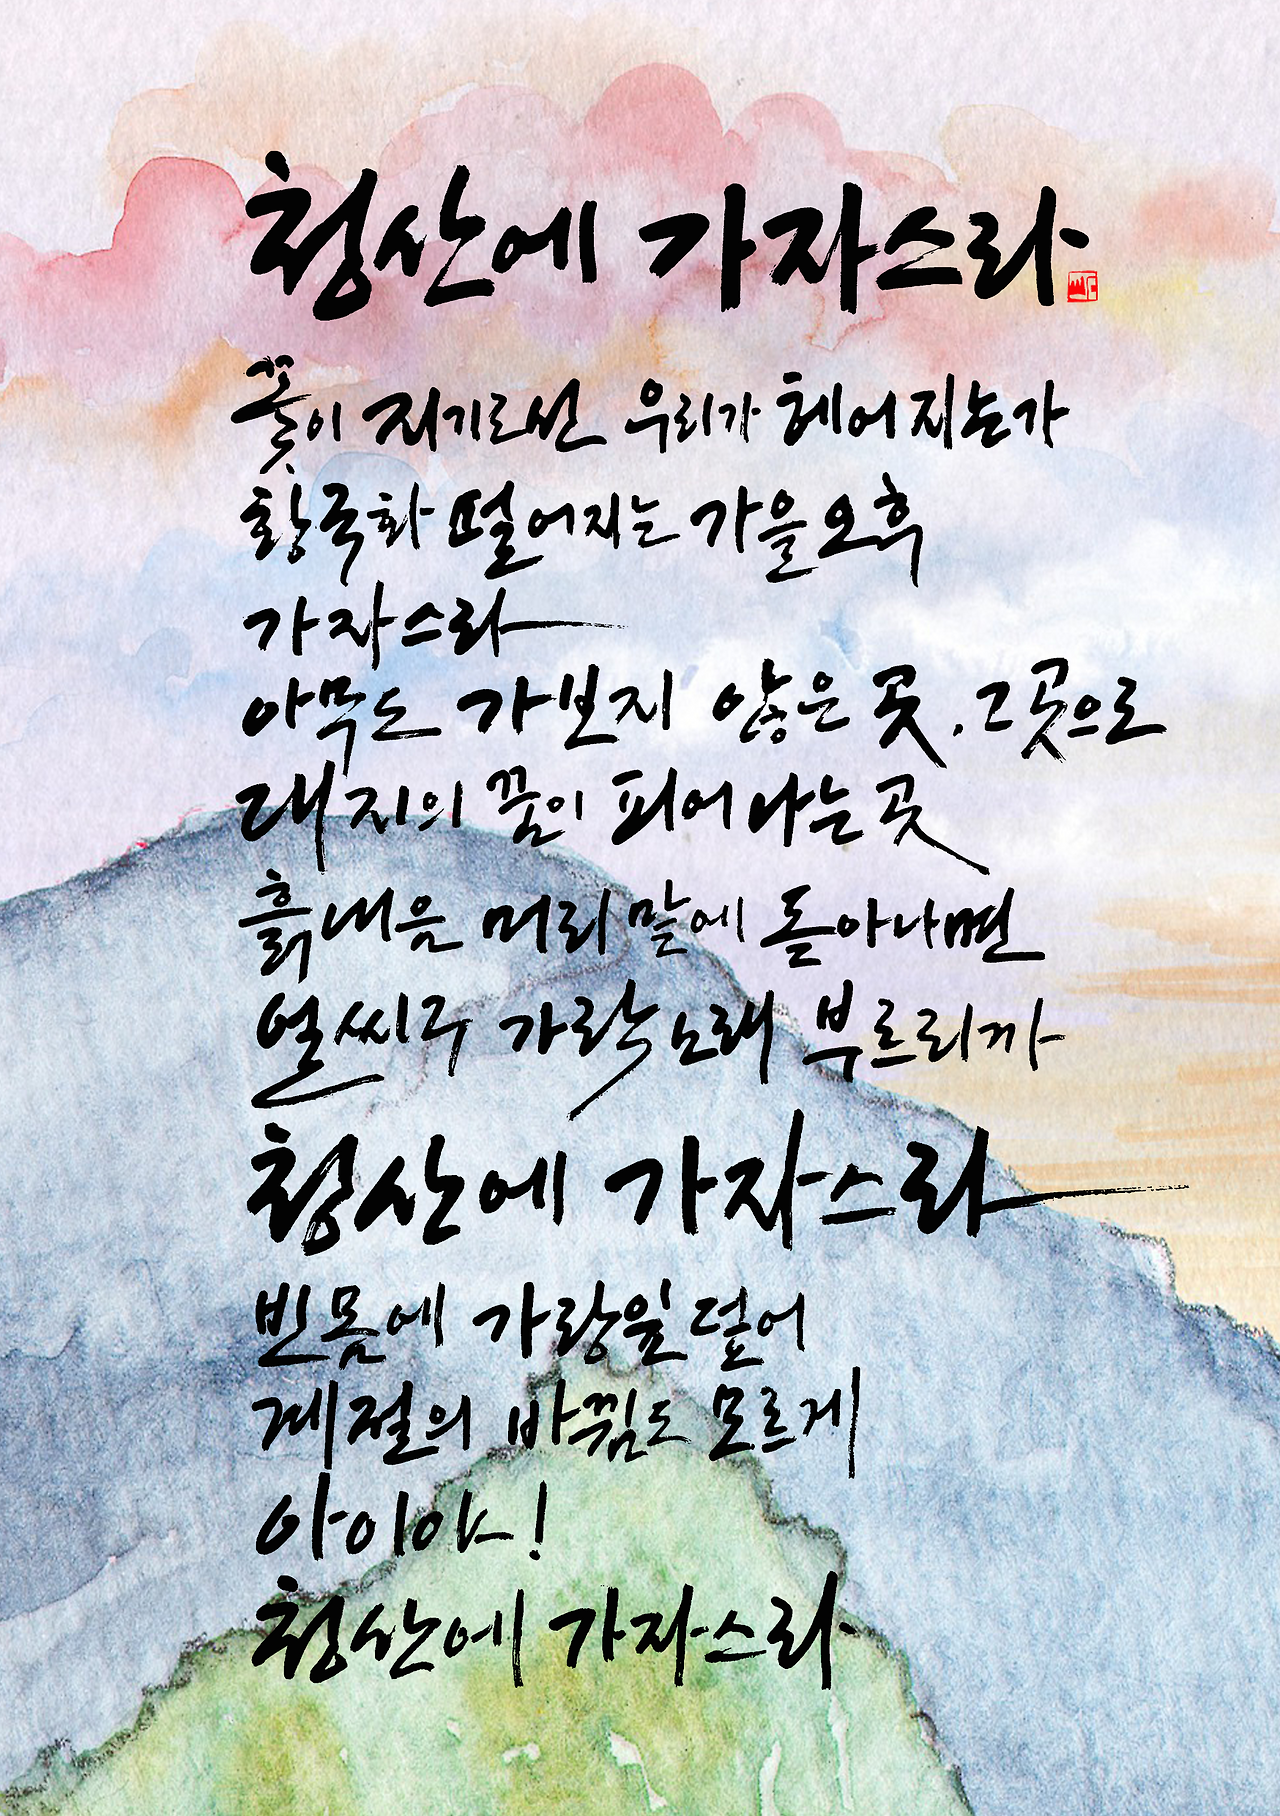 청산에 가자스라
꽃이 지기로선 우리가 헤어지는가
황국화 떨어지는 가을 오후
가자스라
아무도 가보지 않은 곳, 그곳으로
대지의 꿈이 피어나는 곳
흙내음 머리말에 돌아나면
얼씨구 가락노래 부르리까
청산에 가자스라
빈 몸에 가랑잎 덮어
계절의 바뀜도 모르게
아이야!
청산에 가자스라